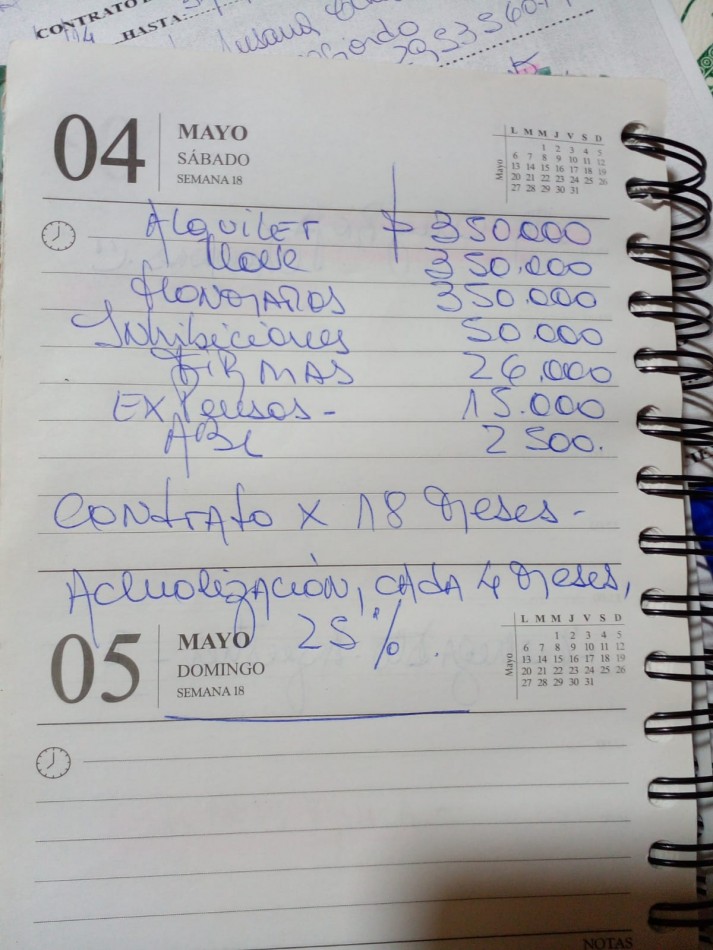 CONTRATO
HASTA:
04
MAYO
SÁBADO
SEMANA 18
Mayo
L M M J V S D
1 2 3 4 5
6 7 8 9 10 11 12
13 14 15 16 17 18 19
20 21 22 23 24 25 26
27 28 29 30 31
Alquiler $ 350.000
llave 350.000
Honorarios 350.000
Inhibiciones 50.000
FIRMAS 26.000
EXPensas - 15.000
ABL 2500.
Contrato x 18 Meses -
Actualización, CADA 4 Meses,
25 %.
05
MAYO
DOMINGO
SEMANA 18
Mayo
L M M J V S D
1 2 3 4 5
6 7 8 9 10 11 12
13 14 15 16 17 18 19
20 21 22 23 24 25 26
27 28 29 30 31
NOTAS